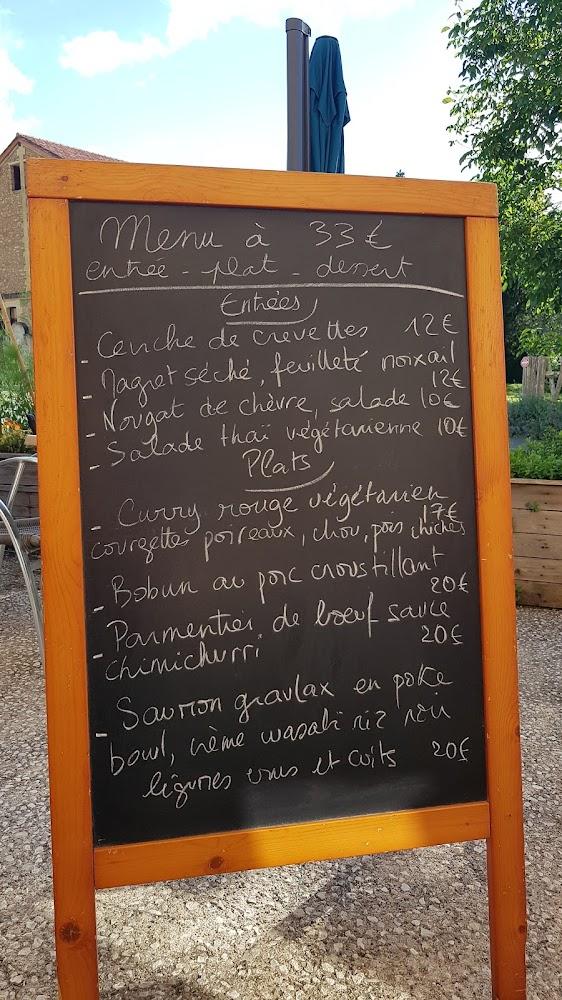 Menu à 33 €
entrée - plat - dessert
Entrées
- Ceviche de crevettes 12€
- Magret séché, feuilleté noix ail
12€
- Nougat de chèvre, salade 10€
- Salade thaï végétarienne 10€
Plats
- Curry rouge végétarien
17€
courgettes poireaux, chou, pois chiches
- Bobun au porc croustillant
20€
- Parmentier de boeuf sauce
chimichurri 20€
- Saumon gravlax en poke
bowl, crème wasabi riz nori
légumes crus et cuits 20€